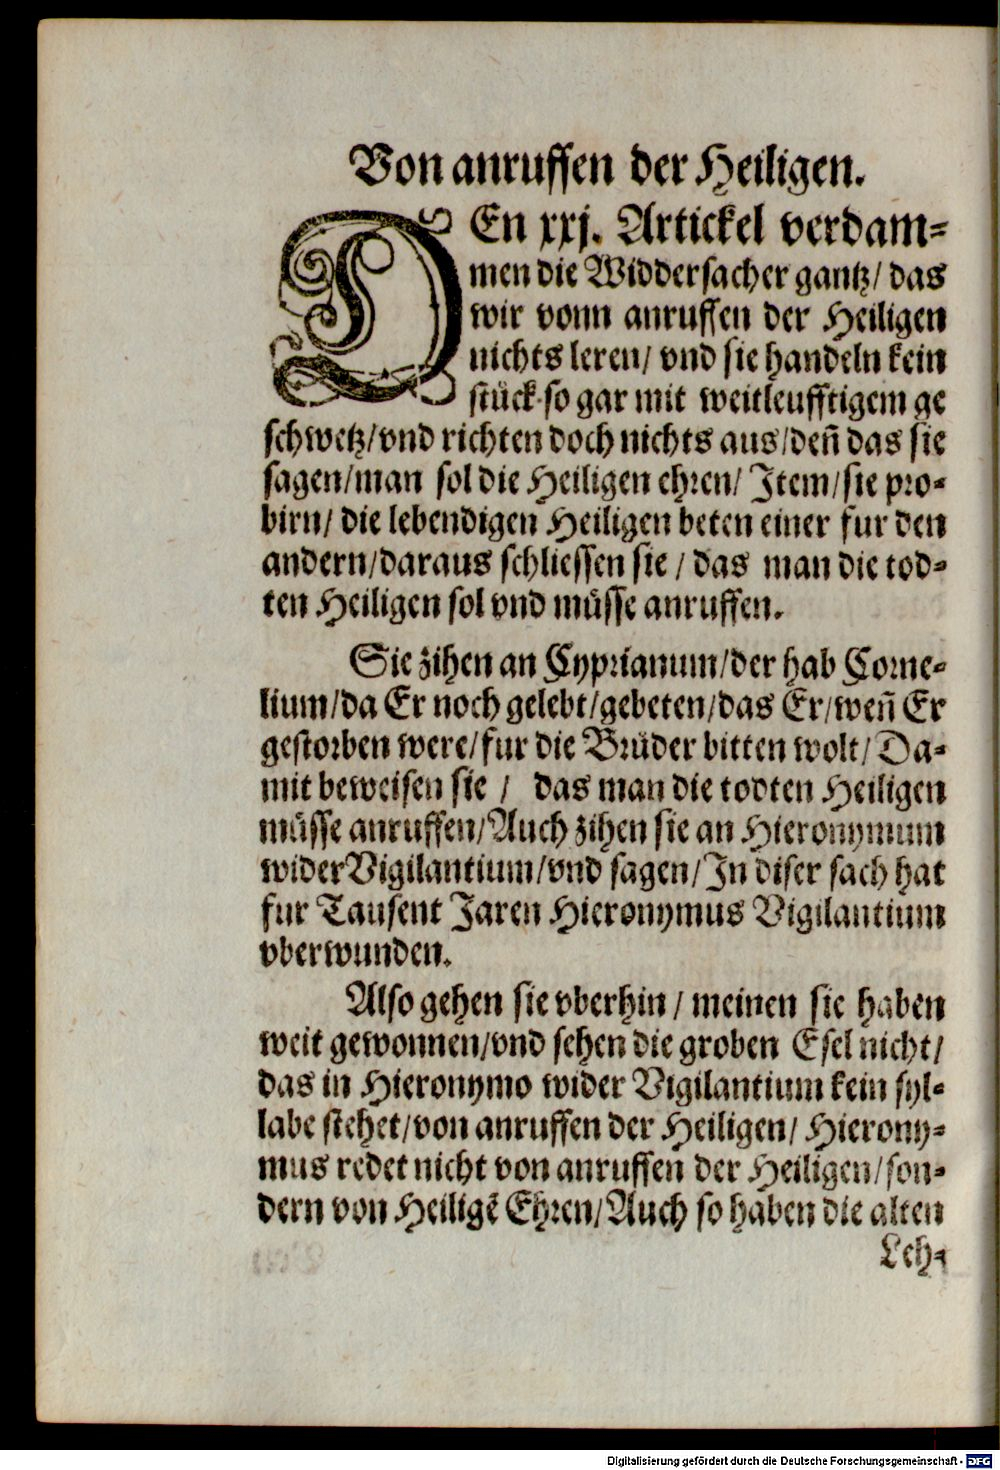 Von anruffen der Heiligen.
DEn xxj. Artickel verdam⸗
men die Widdersacher gantz/ das
wir vonn anruffen der Heiligen
nichts leren/ vnd sie handeln kein
stück so gar mit weitleufftigem ge
schwetz/vnd richten doch nichts aus/deñ das sie
sagen/man sol die Heiligen ehren/ Item/sie pro⸗
birn/ die lebendigen Heiligen beten einer fur den
andern/daraus schliessen sie / das man die tod⸗
ten Heiligen sol vnd müsse anruffen.
Sie zihen an Cyprianum/der hab Corne⸗
lium/da Er noch gelebt/gebeten/das Er/weñ Er
gestorben were/fur die Brüder bitten wolt/ Da⸗
mit beweisen sie / das man die todten Heiligen
müsse anruffen/Auch zihen sie an Hieronymum
wider Vigilantium/vnd sagen/In diser sach hat
fur Tausent Jaren Hieronymus Vigilantium
vberwunden.
Also gehen sie vberhin / meinen sie haben
weit gewonnen/vnd sehen die groben Esel nicht/
das in Hieronymo wider Vigilantium kein syl⸗
labe stehet/von anruffen der Heiligen/ Hierony⸗
mus redet nicht von anruffen der Heiligen/son⸗
dern von Heiligẽ Ehren/Auch so haben die alten
Leh⸗
Digitalisierung gefördert durch die Deutsche Forschungsgemeinschaft - DFG